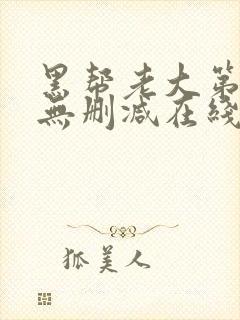 黑帮老大第
無删减在綫
狐美人